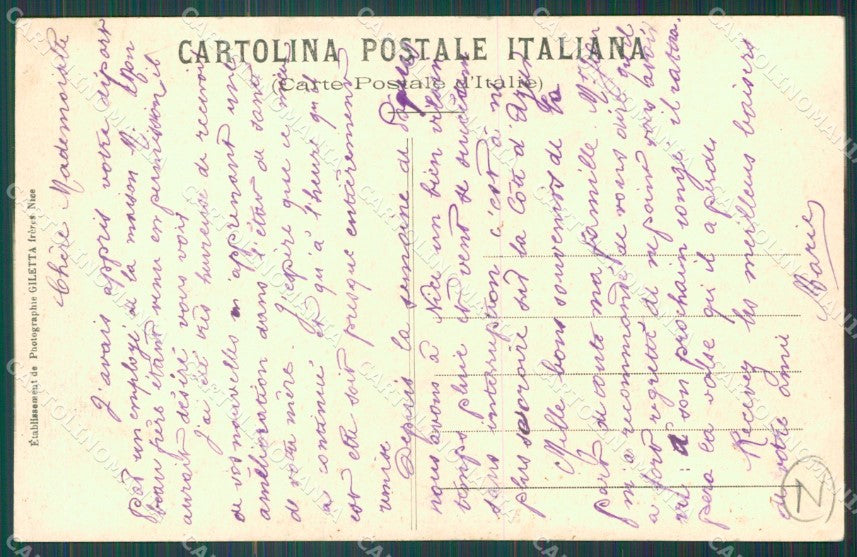 CARTOLINA POSTALE ITALIANA
(Carte Postale d'Italie)
Établissement de Photographie GILETTA frères Nice
Chère Mademoiselle
J'avais appris votre départ
par un employé de la maison. Mr Lyon
beau frère étant venu en permission il
aurait désiré vous voir
J'ai été très heureuse de recevoir
de vos nouvelles en apprenant une
amélioration dans l'état de santé
de votre mère. J'espère que ce mieux
a continué et qu'à l'heure qu'il
est elle soit presque entièrement
remise
Depuis la semaine de
nous avons à Nice un bien vilain
temps pluie et vent se succèdent
sans interruption c'est à ne
plus se croire sur la Côte d'Azur
Mille bons souvenirs de la
part de toute ma famille. Mr Lyon
m'a recommandé de vous dire qu'il
a fort regretté de ne point vous avoir
vue à son prochain congé il rattra-
pera la valse qu'il a perdu
Recevez les meilleurs baisers
de votre amie
Marie
N
CARTOLINOMANIA